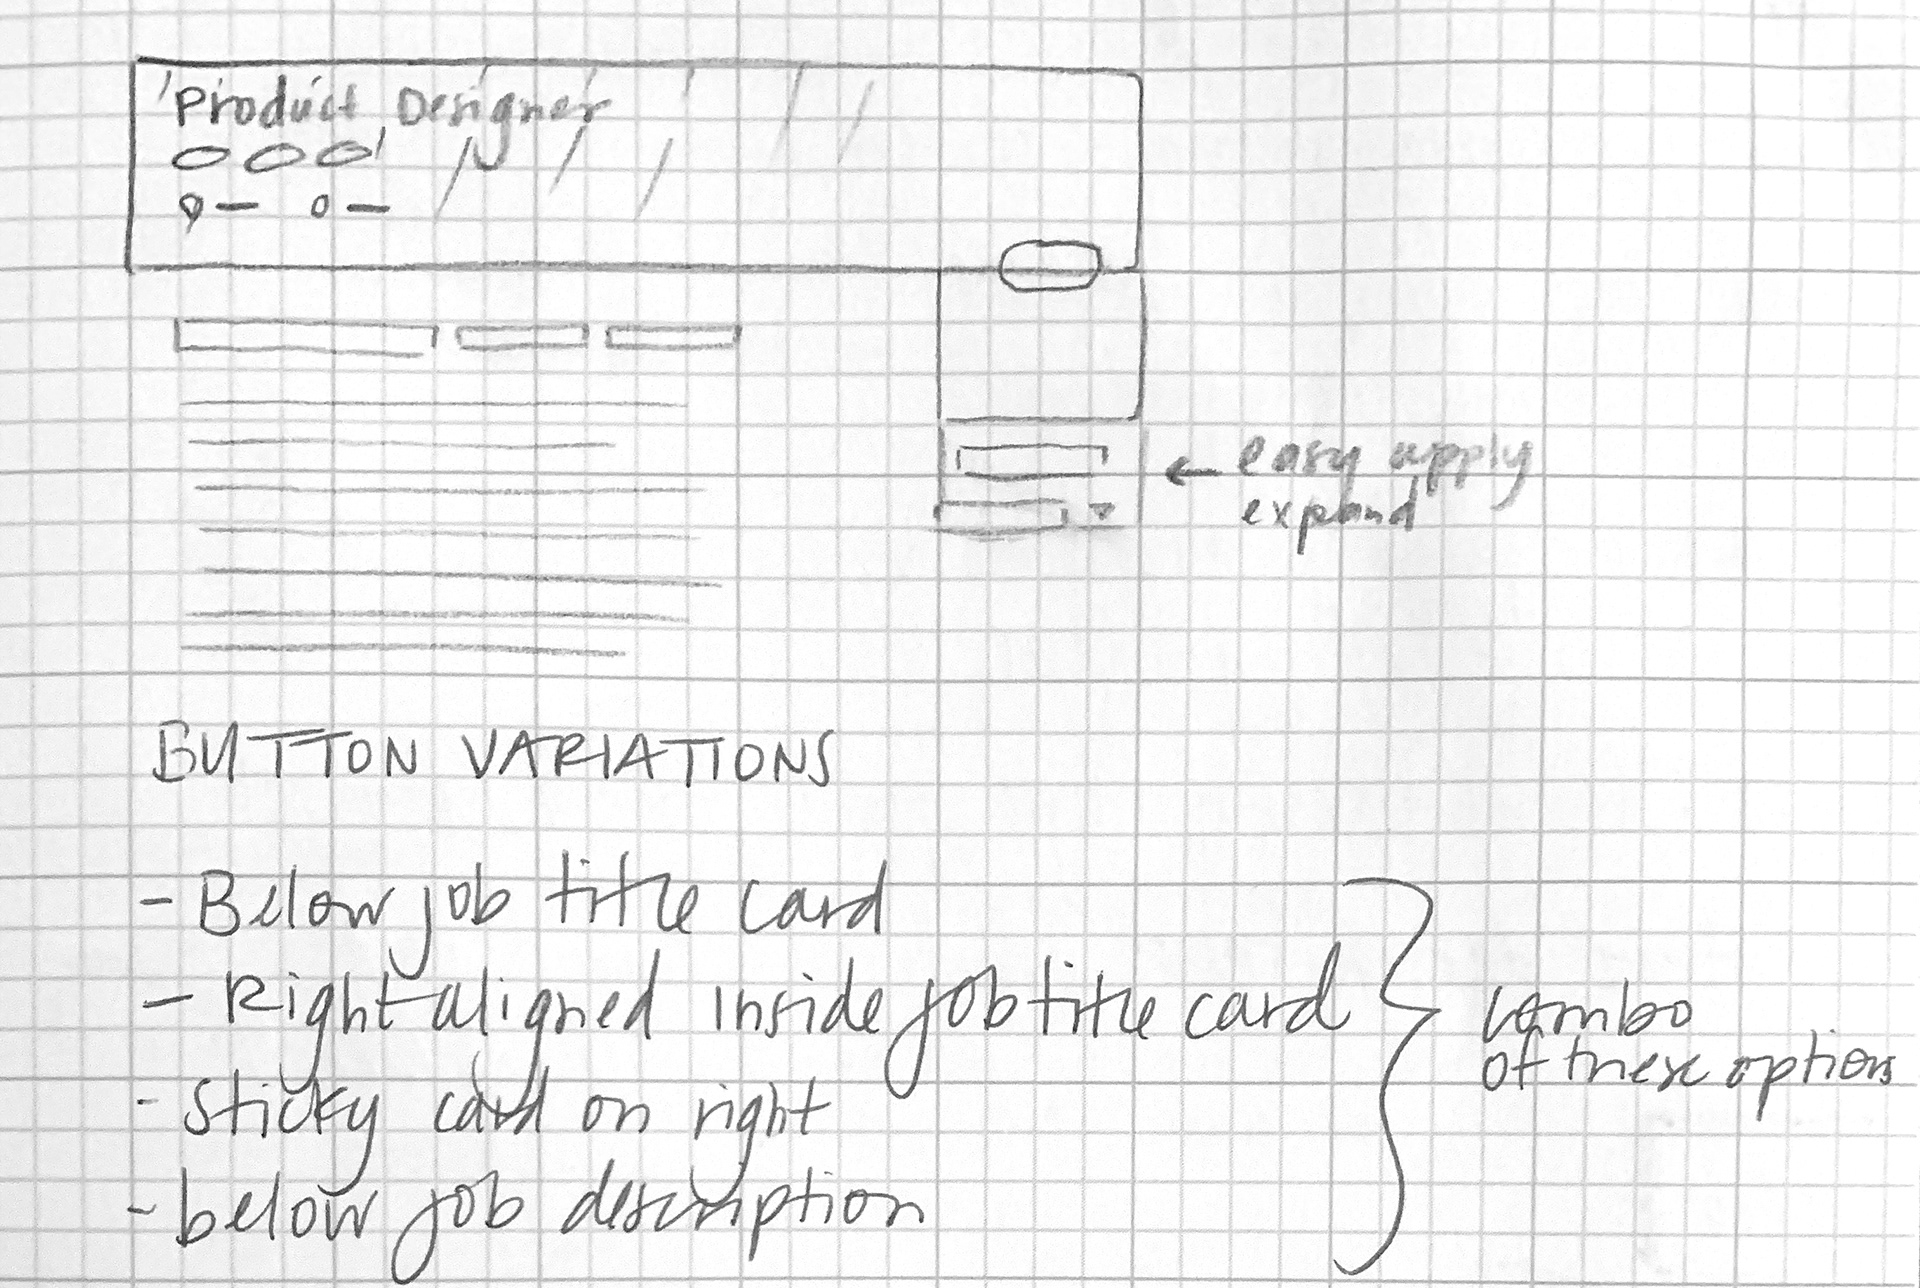 Product Designer
← easy apply
expand
BUTTON VARIATIONS
- Below job title card
- Right aligned inside job title card
- Sticky card on right
- below job description
combo
of these options